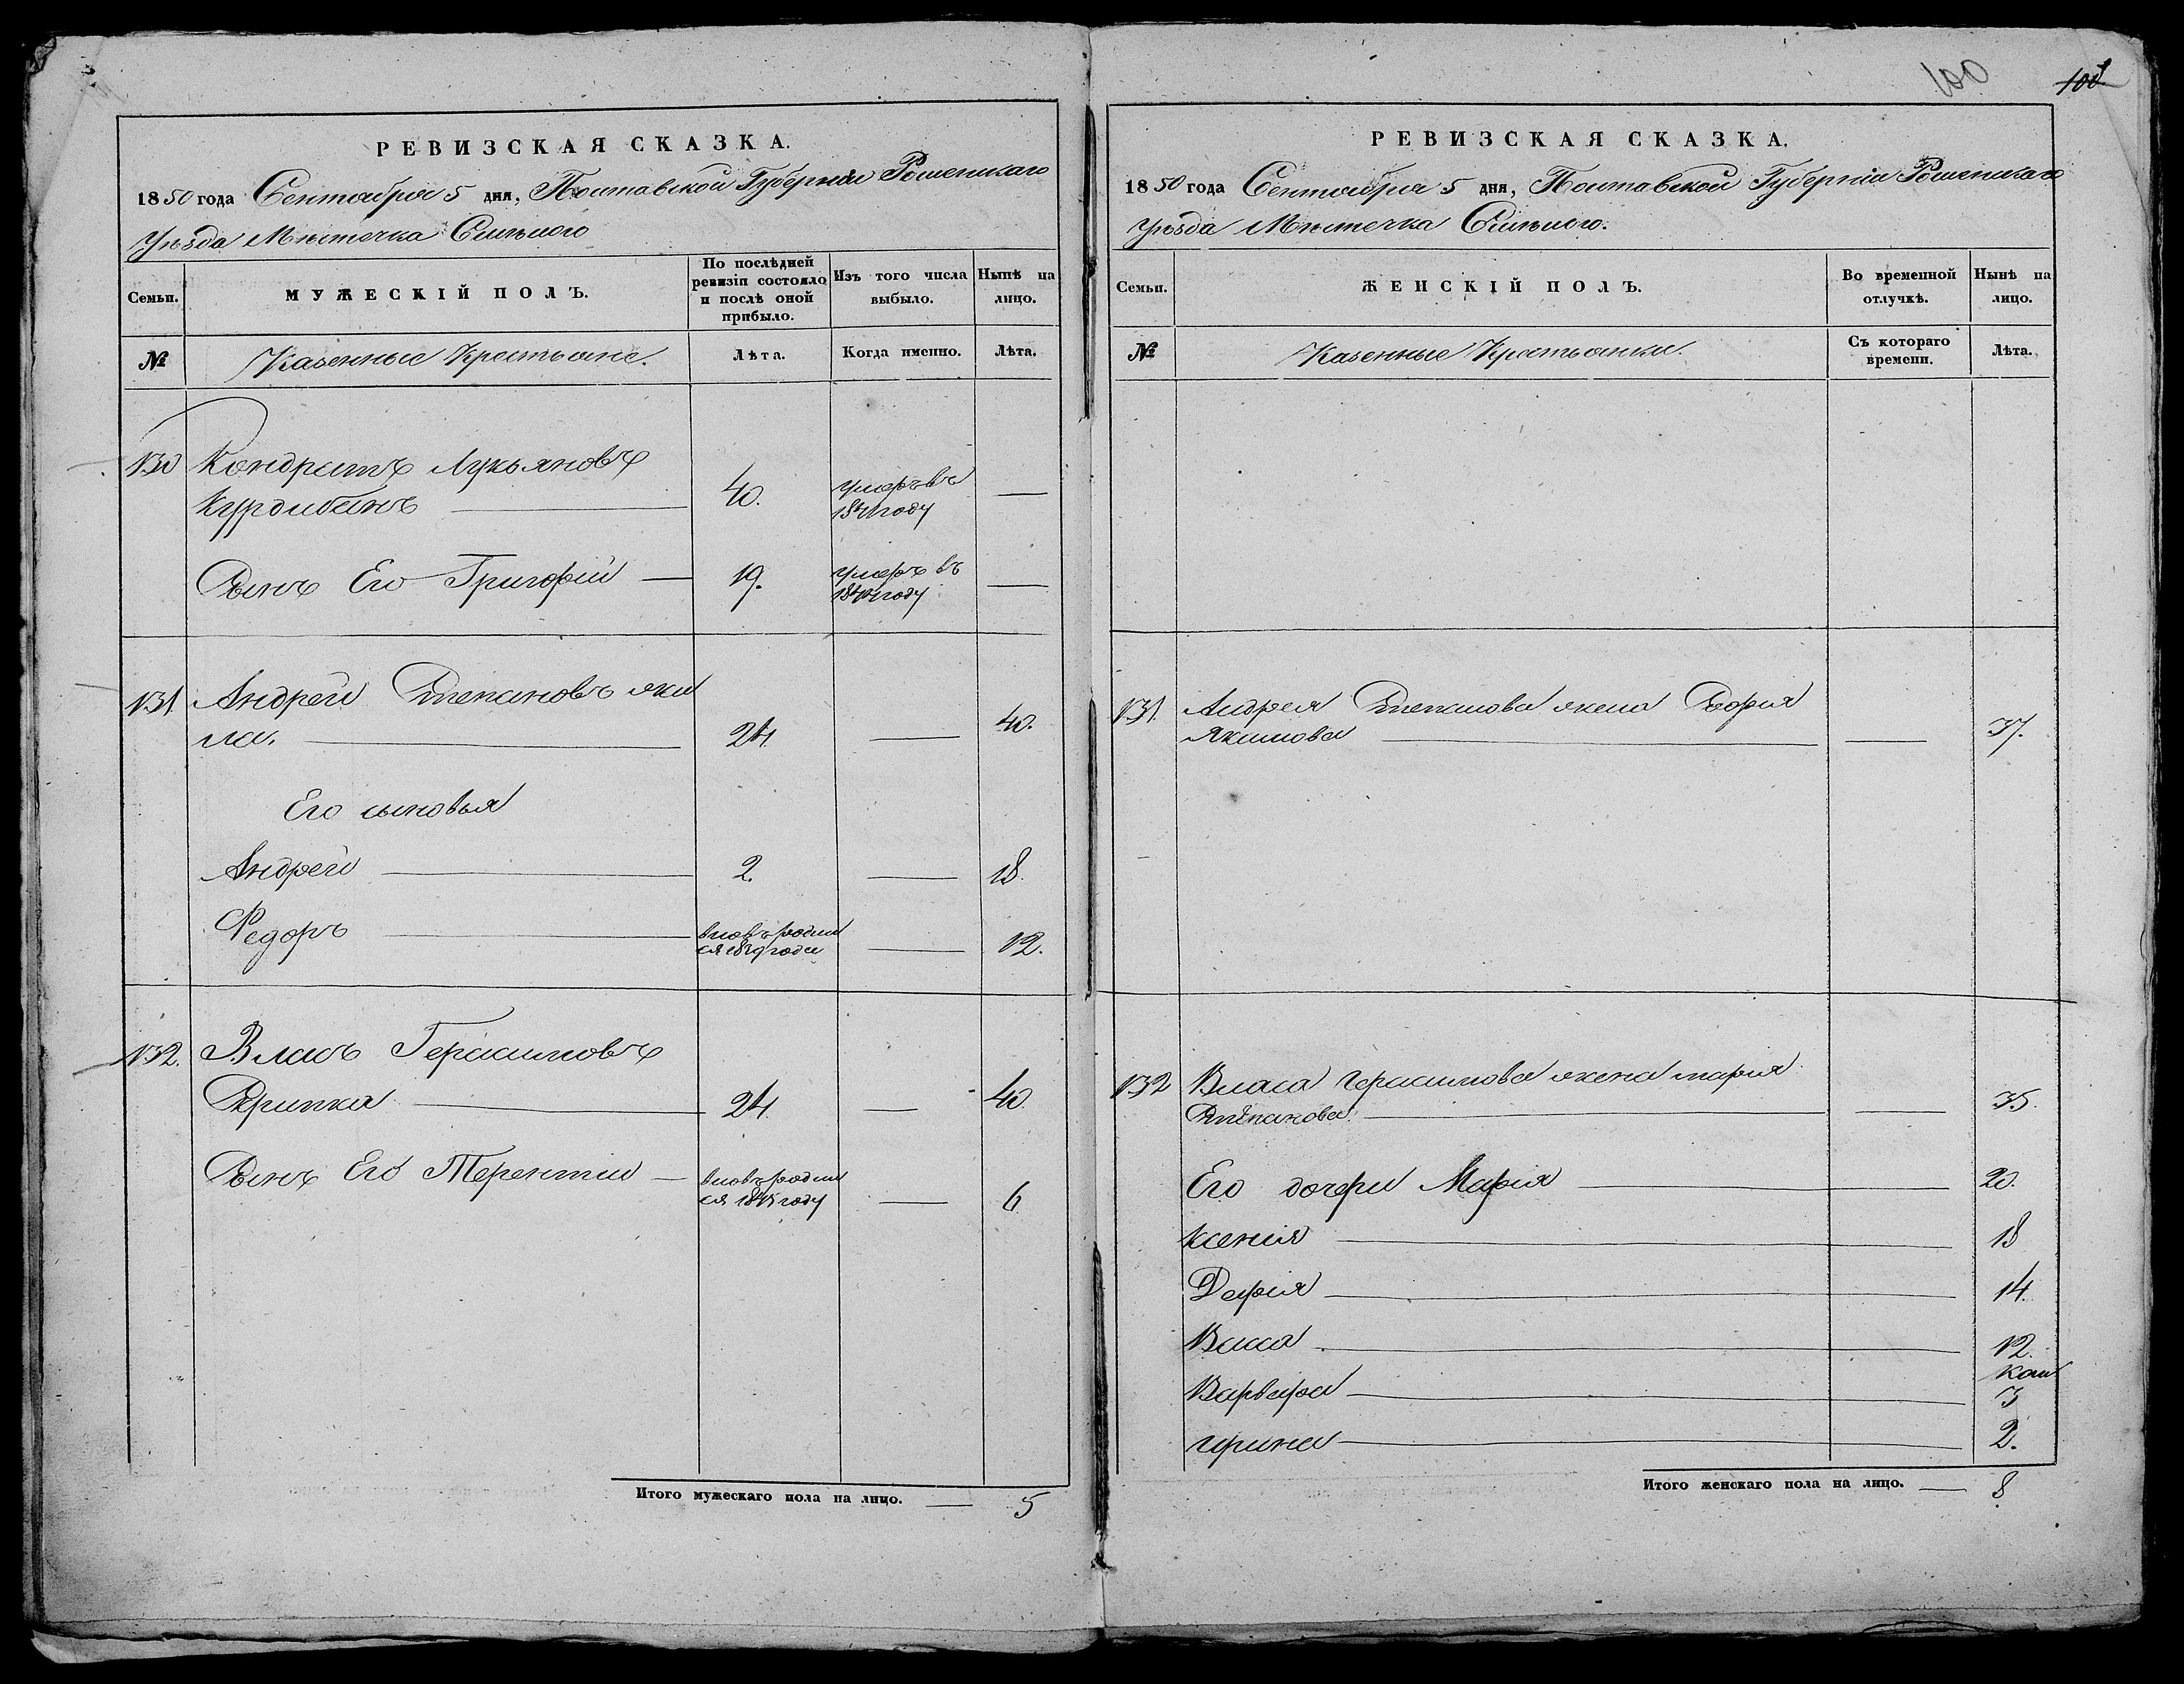 100
РЕВИЗСКАЯ СКАЗКА.
1850 года Сентября 5 дня, Полтавской Губерніи Роменскаго
Уѣзда Мѣстечка Смѣлаго
Семьи.
МУЖЕСКІЙ ПОЛЪ.
По послѣдней ревизіи состояло и послѣ оной прибыло.
Изъ того числа выбыло.
Нынѣ на лицо.
№
Казенные Крестьяне.
Лѣта.
Когда именно.
Лѣта.
130 Кондратъ Лукьяновъ
40. умеръ въ
году
Сынъ Его Григорій 19. умеръ въ
году
131 Андрей Степановъ яки
ма. 24. 40.
Его сыновья
Андрей 2. 18.
Федоръ вновь родил 12.
ся 1839 года
132. Власъ Герасимовъ
Скрипка 24. 40.
Сынъ Его Терентій вновь родил
ся 1845 году 6
Итого мужескаго пола на лицо. 5
РЕВИЗСКАЯ СКАЗКА.
1850 года Сентября 5 дня, Полтавской Губерніи Роменскаго
Уѣзда Мѣстечка Смѣлаго.
Семьи.
ЖЕНСКІЙ ПОЛЪ.
Во временной отлучкѣ.
Нынѣ на лицо.
№
Казенные Крестьянки.
Съ котораго времени.
Лѣта.
131. Андрея Степанова жена Софія
Якимова 37.
132 Власа Герасимова жена марія
Степанова. 35.
Его дочери Марія 20.
Ксенія 18
Дарія 14.
Васса 12.
Варвара 3
ирина 2.
Итого женскаго пола на лицо. 8